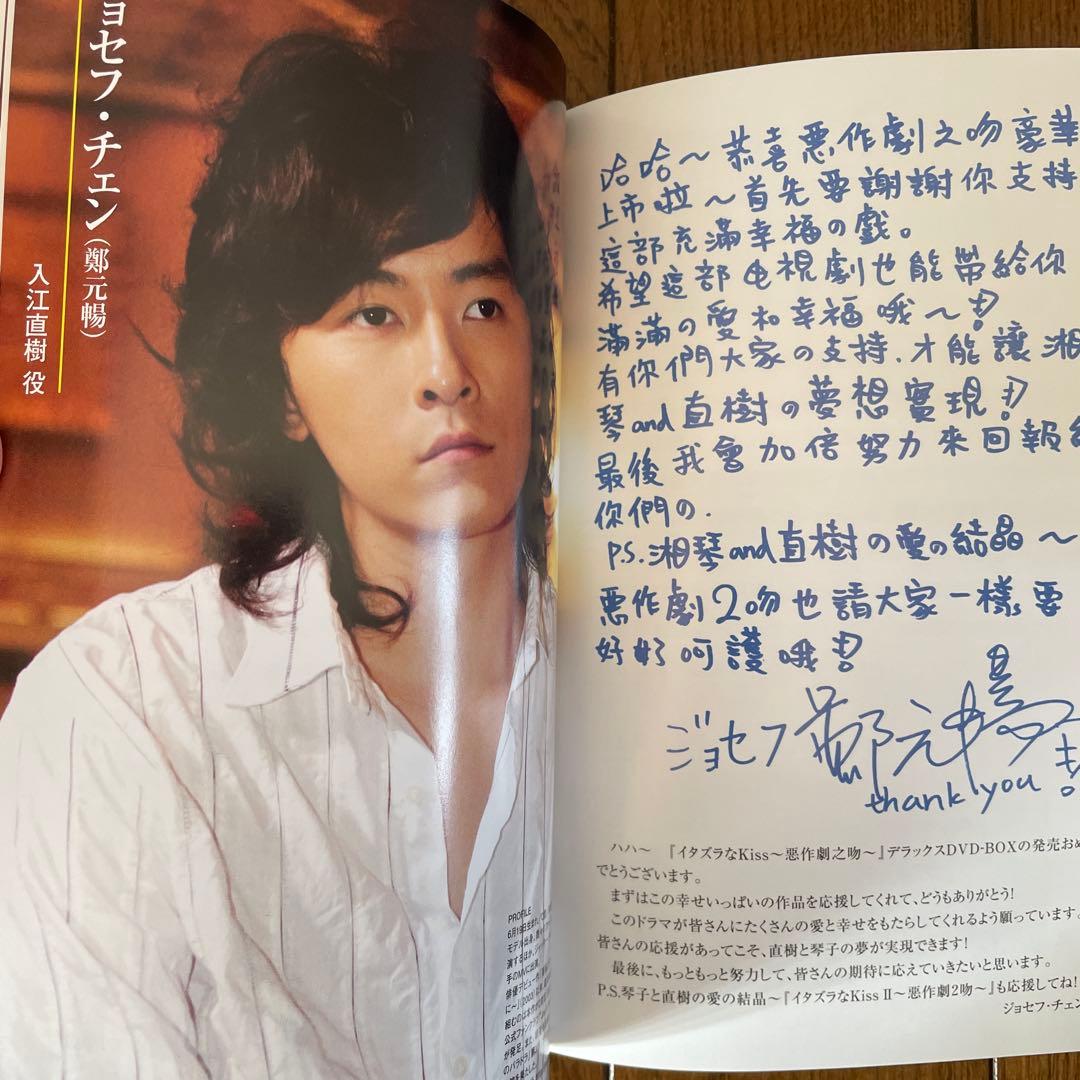 ョセフ・チェン(鄭元暢)
入江直樹 役
PROFILE
哈哈～恭喜惡作劇之吻豪華
上市啦～首先要謝謝你支持
這部充滿幸福の戲。
希望這部电視劇也能帶給你
滿滿の愛和幸福哦～!
有你們大家の支持.才能讓湘
琴and直樹の夢想實現!
最後我會加倍努力來回報給
你們の.
P.S.湘琴and直樹の愛の結晶～
惡作劇2吻也請大家一樣要
好好呵護哦!
ジョセフ 鄭元暢
thank you!
ハハ～ 『イタズラなKiss～悪作劇之吻～』デラックスDVD-BOXの発売おめ
でとうございます。
まずはこの幸せいっぱいの作品を応援してくれて、どうもありがとう!
このドラマが皆さんにたくさんの愛と幸せをもたらしてくれるよう願っています。
皆さんの応援があってこそ、直樹と琴子の夢が実現できます!
最後に、もっともっと努力して、皆さんの期待に応えていきたいと思います。
P.S.琴子と直樹の愛の結晶～『イタズラなKiss II～悪作劇2吻～』も応援してね!
ジョセフ・チェン